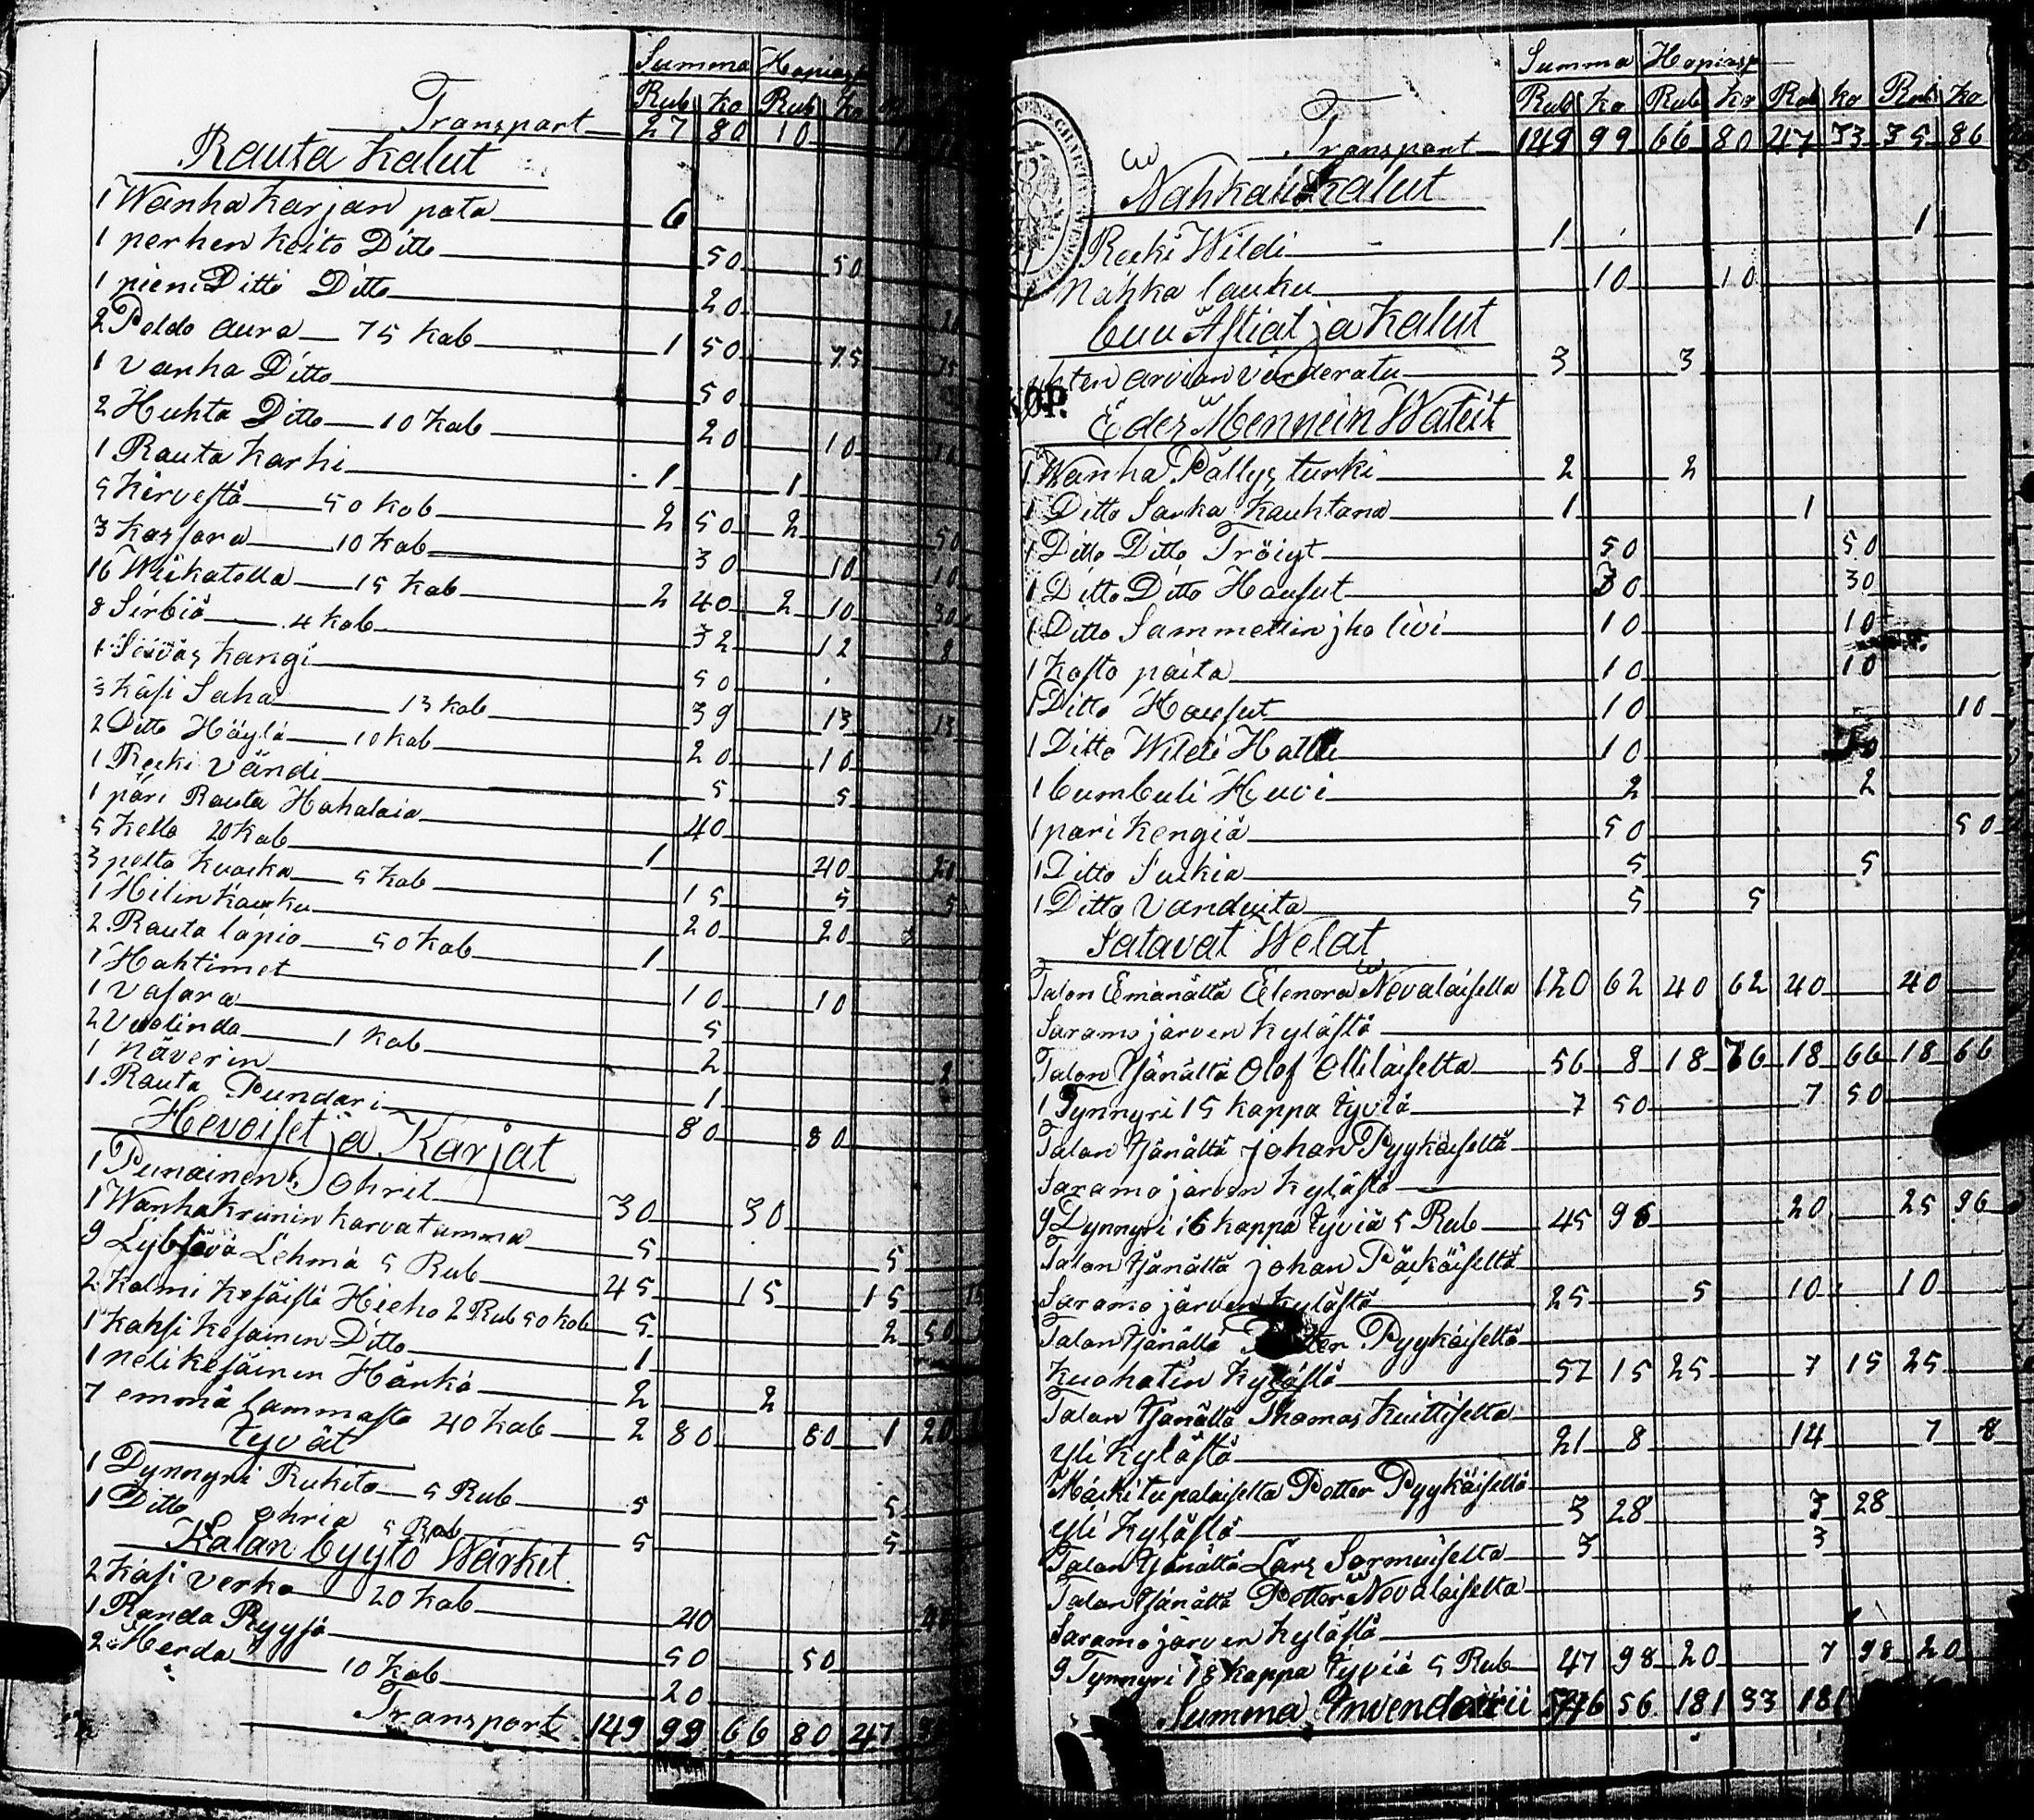 Summa Hopiasp
Rub ko Rub ko
Transport 27 80 10
Rauta Kalut
1 Wanha Karjan pata 6
1 perhen Keito Ditto 50 50
1 pieni Ditto Ditto 20 20
2 Peldo aura 75 Kob 1 50 75 75
1 Vanha Ditto 50
2 Huhta Ditto 10 Kob 20 10 10
1 Rauta Karhi 1 1
5 Kirvestä 50 Kob 2 50 2 50
3 Kassara 10 Kob 30 10 10
16 Wiikatetta 15 Kob 2 40 2 10 30
8 Sirbiä 4 Kob 32 12 8
1 Seiväs Kangi 50
3 Käsi Saha 13 Kob 39 13 13
2 Ditto Höylä 10 Kob 20 10
1 Reeki Vändi 5 5
1 päri Rauta Hahalaia 40
5 Kello 20 Kob 1 40 20
3 pelto Kuocka 5 Kob 15 5 5
1 Hilin Koucku 20 20
2 Rauta lapio 50 Kob 1
1 Hahtimet 10 10
1 Vasara 5
2 Vuolinda 1 Kob 2 2
1 Näverin 1
1 Rauta Pundari 80 80
Hevoiset ja Karjat
1 Punainen Ohrit 30 30
1 Wanha Krunin Karva tamma 5 5
9 Lybsävä Lehmä 5 Rub 45 15 15 15
2 Kolmi Kesäistä Hieho 2 Rub 50 Kob 5 2 50
1 Kahsi Kesäinen Ditto 1
1 neli Kesäinen Härkä 2 2
7 emmä lammasta 40 Kob 2 80 80 1 20
tyvät
1 Dynnyri Rukita 5 Rub 5 5
1 Ditto ohria 5 Rub 5 5
Kalan byytö Wärkit
2 Käsi Verko 20 Kob 40 40
1 Randa Ryysä 50 50
2 Merda 10 Kob 20
Transport 149 99 66 80 47
Summa Hopiasp
Rub ko Rub ko Rub ko Rub ko
Transport 149 99 66 80 47 33 35 86
Nahka Kalut
1 Reeki Wildi 1 1
1 Nahka laucku 10 10
buu Astiat ja Kalut
yhten arvion värderatu 3 3
KØP.
Edes Mennein Wateit
1 Wanha Pällys turki 2 2
1 Ditto Sarka Kauhtana 1 1
1 Ditto Ditto Tröiyt 50 50
1 Ditto Ditto Housut 30 30
1 Ditto Sammettin jho livi 10 10
1 Kosto paita 10 10
1 Ditto Housut 10 10
1 Ditto Wildi Hattu 10
1 bumbuli Huvi 2 2
1 pari Kengiä 50 50
1 Ditto Sukia 5 5
1 Ditto Vanduita 5 5
Satavat Welat
Talon Emänältä Elenora Nevalaiselta 120 62 40 62 40 40
Saramojärven Kylästä
Talon Isänältä Olof Ollilaiselta 56 8 18 76 18 66 18 66
1 Tynnyri 15 Kappa tyviä 7 50 7 50
Talon Isänältä Johan Pyykäiseltä
Saramojärven Kylästä
9 Dynnyri 16 Kappa tyviä 5 Rub 45 96 20 25 96
Talon Isänältä Johan Päikäiseltä
Saramojärven Kylästä 25 5 10 10
Talon Isänältä Petter Pyykäiseltä
Kuohatin Kylästä 57 15 25 7 15 25
Talon Isänältä Thomas Kuittiselta
Yli Kylästä 21 8 14 7 8
Mäcki tupalaiselta Petter Pyykäiseltä
Yli Kylästä 3 28 3 28
Talon Isänältä Lars Sormuiselta 3 3
Talon Isänältä Petter Nevalaiselta
Saramojärven Kylästä
9 Tynnyri 18 Kappa tyviä 5 Rub 47 98 20 7 98 20
Summa Inventarii 56 181 33 181